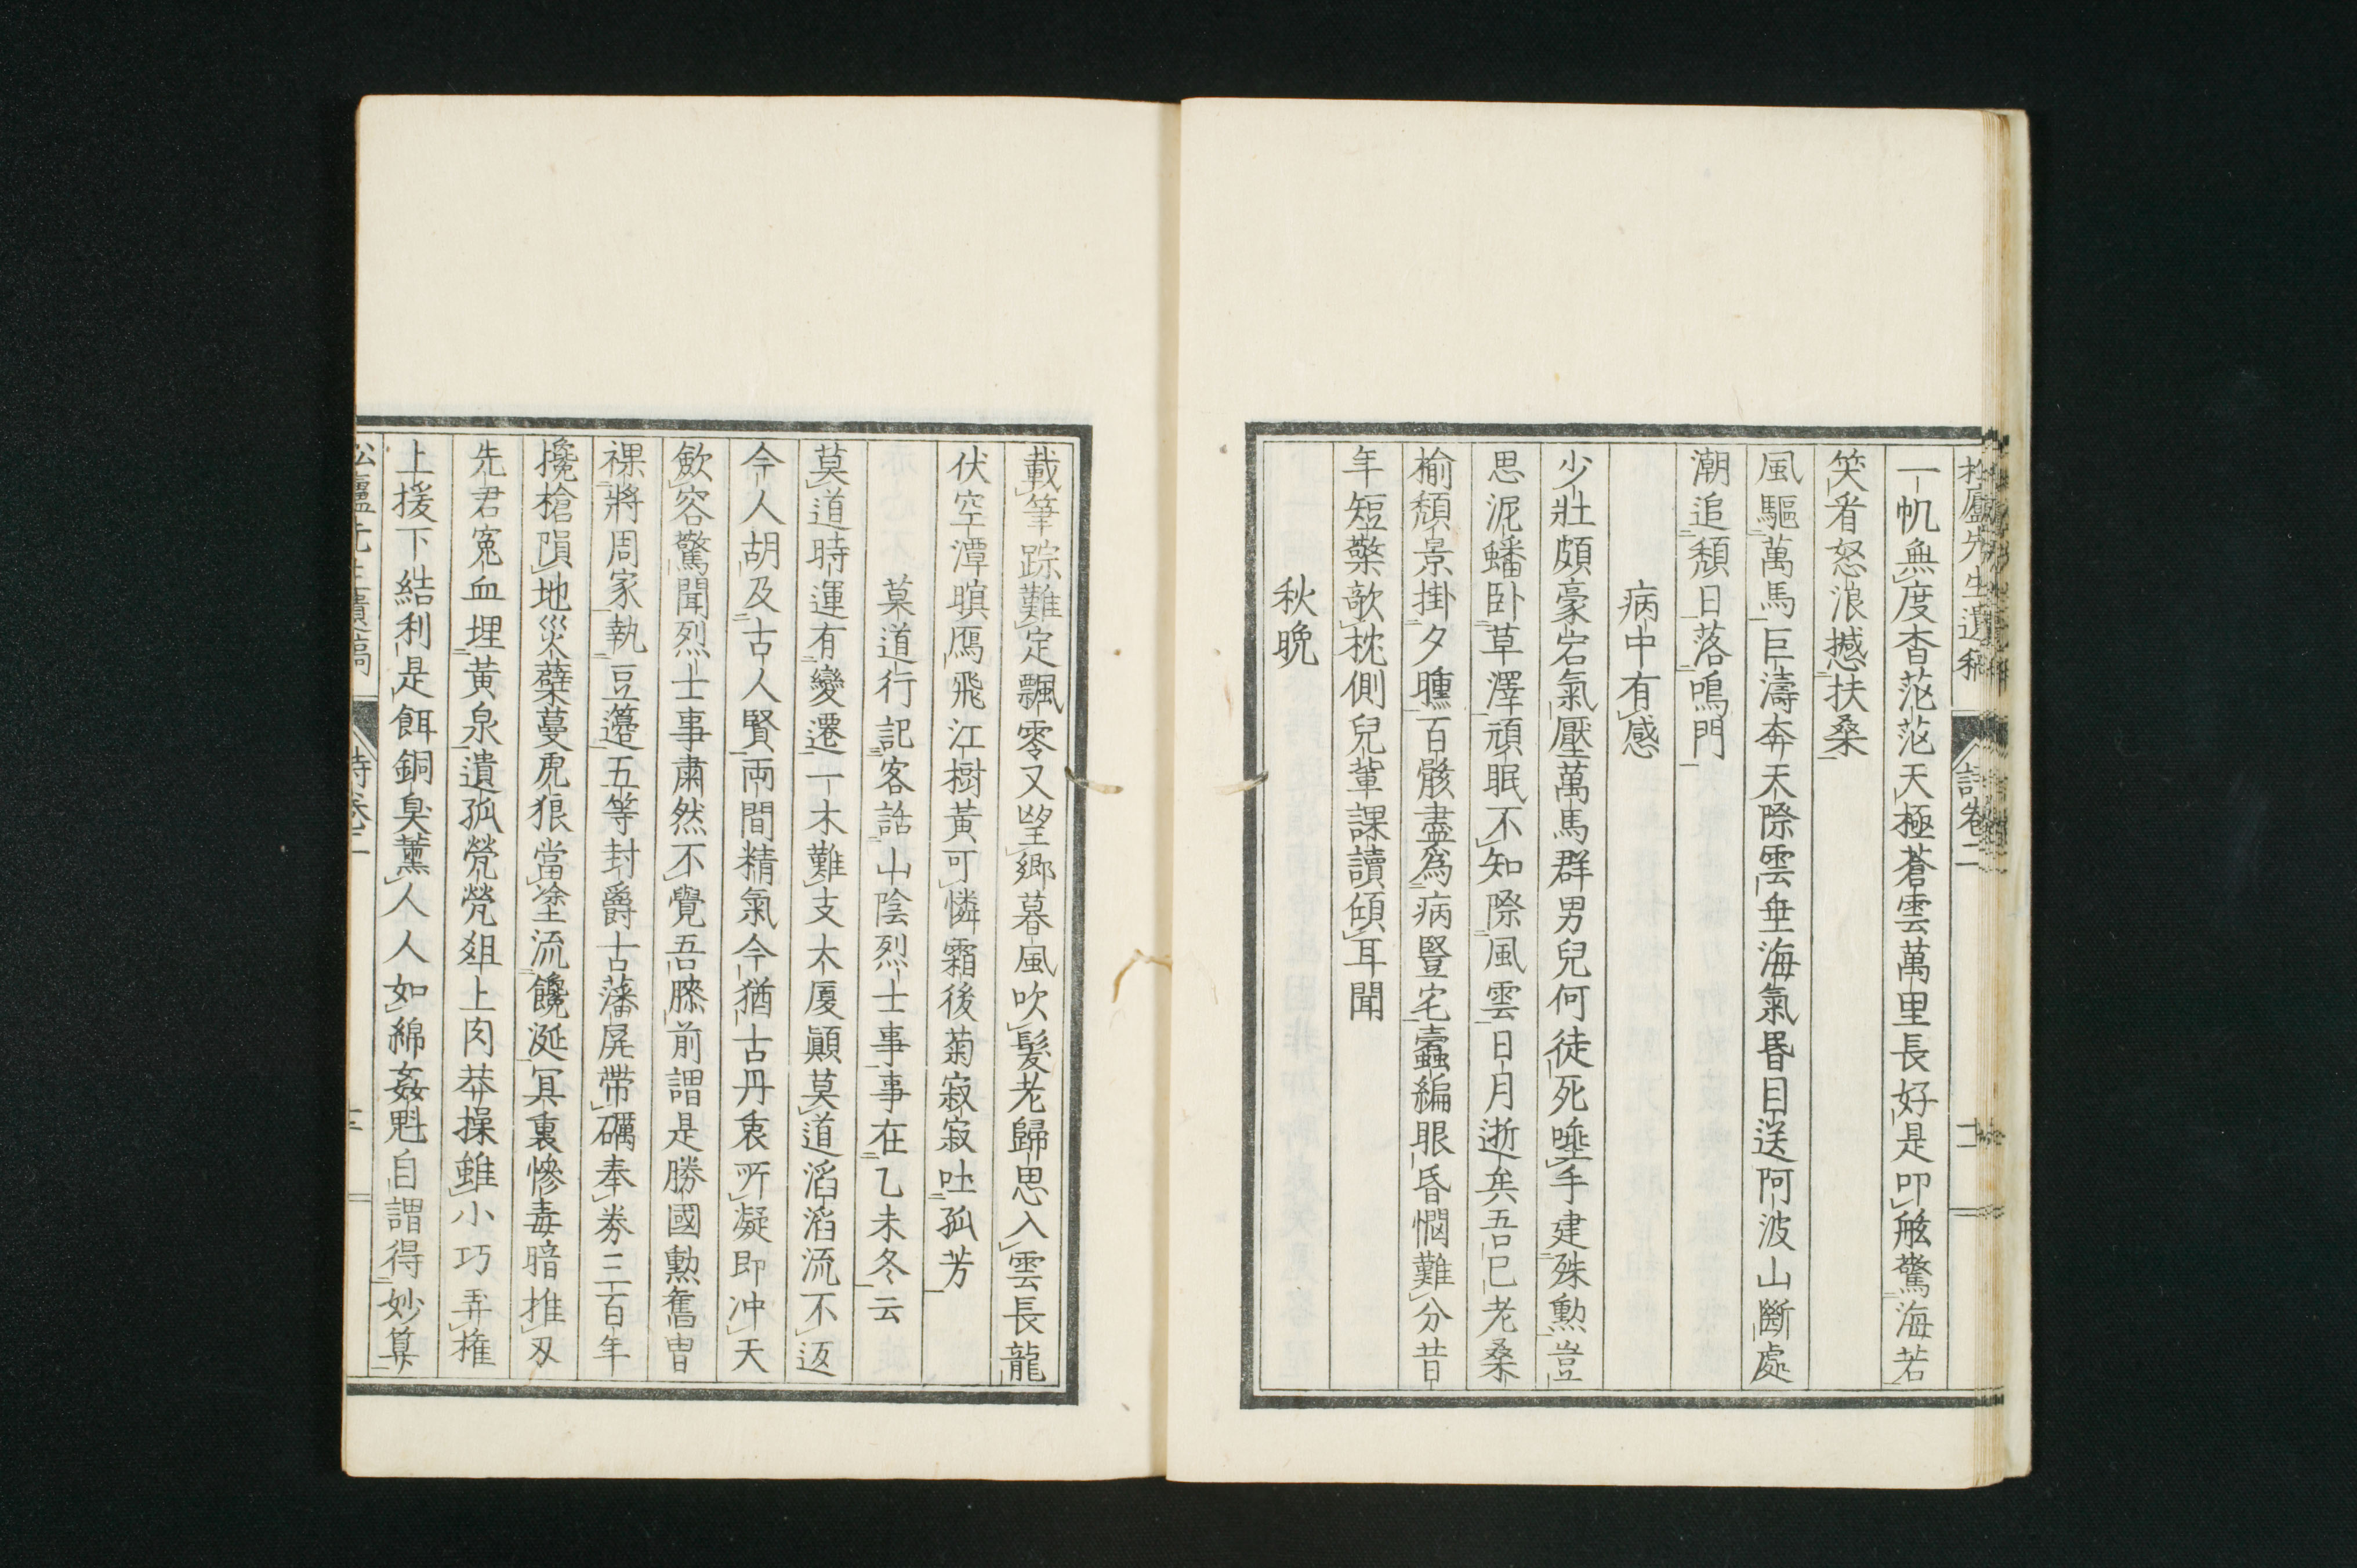 松廬先生遺稿 詩卷二 二
一帆無度杳茫茫天極蒼雲萬里長好是叩舷驚海若
笑看怒浪撼扶桑
風驅萬馬巨濤奔天際雲垂海氣昬目送阿波山斷處
潮追頹日落鳴門
病中有感
少壯頗豪宕氣壓萬馬群男兒何徒死唾手建殊勳豈
思泥蟠卧草澤頑眠不知際風雲日月逝矣吾已老桑
榆頹景掛夕曛百骸盡爲病豎宅蠹編眼昏憫難分昔
年短檠欹枕側兒輩課讀傾耳聞
秋晚
載筆踪難定飄零又望鄉暮風吹髮老歸思入雲長龍
伏空潭暝鴈飛江樹黃可憐霜後菊寂寂吐孤芳
莫道行記客話山陰烈士事事在乙未冬云
莫道時運有變遷一木難支大厦顚莫道滔滔流不返
今人胡及古人賢兩間精氣今猶古丹衷所凝即冲天
歛容驚聞烈士事肅然不覺吾膝前謂是勝國勳舊冑
祼將周家執豆籩五等封爵古藩屏帶礪奉券三百年
攙槍隕地災孽蔓虎狼當塗流饞涎冥裏慘毒暗推刃
先君寃血埋黃泉遺孤煢煢俎上肉莽操雖小巧弄権
上援下結利是餌銅臭薰人人如綿姦魁自謂得妙算
松廬先生遺稿 詩卷二